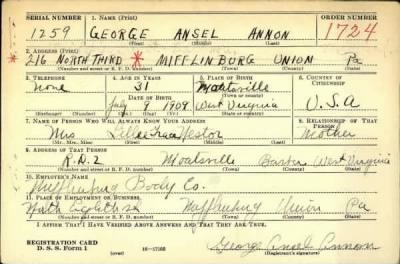 SERIAL NUMBER 1. NAME (Print) ORDER NUMBER
1259 GEORGE ANSEL ANNON 1724
(First) (Middle) (Last)
2. ADDRESS (Print)
* 216 NORTH THIRD * MIFFLINBURG UNION Pa
(Number and street or R. F. D. number) (Town) (County) (State)
3. TELEPHONE 4. AGE IN YEARS 5. PLACE OF BIRTH 6. COUNTRY OF CITIZENSHIP
None 31 Moatsville
DATE OF BIRTH (Town or county)
July 9 1909 West Virginia U.S.A
(Mo.) (Day) (Yr.) (State or country)
7. NAME OF PERSON WHO WILL ALWAYS KNOW YOUR ADDRESS 8. RELATIONSHIP OF THAT PERSON
Mrs Grace Nestor Mother
(Mr., Mrs., Miss) (First) (Middle) (Last)
9. ADDRESS OF THAT PERSON
R.D.2 Moatsville West Virginia
(Number and street or R. F. D. number) (Town) (County) (State)
10. EMPLOYER'S NAME
Mifflinburg Body Co.
11. PLACE OF EMPLOYMENT OR BUSINESS
North Mifflinburg Union Pa
(Number and street or R. F. D. number) (Town) (County) (State)
I AFFIRM THAT I HAVE VERIFIED ABOVE ANSWERS AND THAT THEY ARE TRUE.
REGISTRATION CARD
D. S. S. Form 1 16-17105 George Ansel Annon
(over) (Registrant's signature)